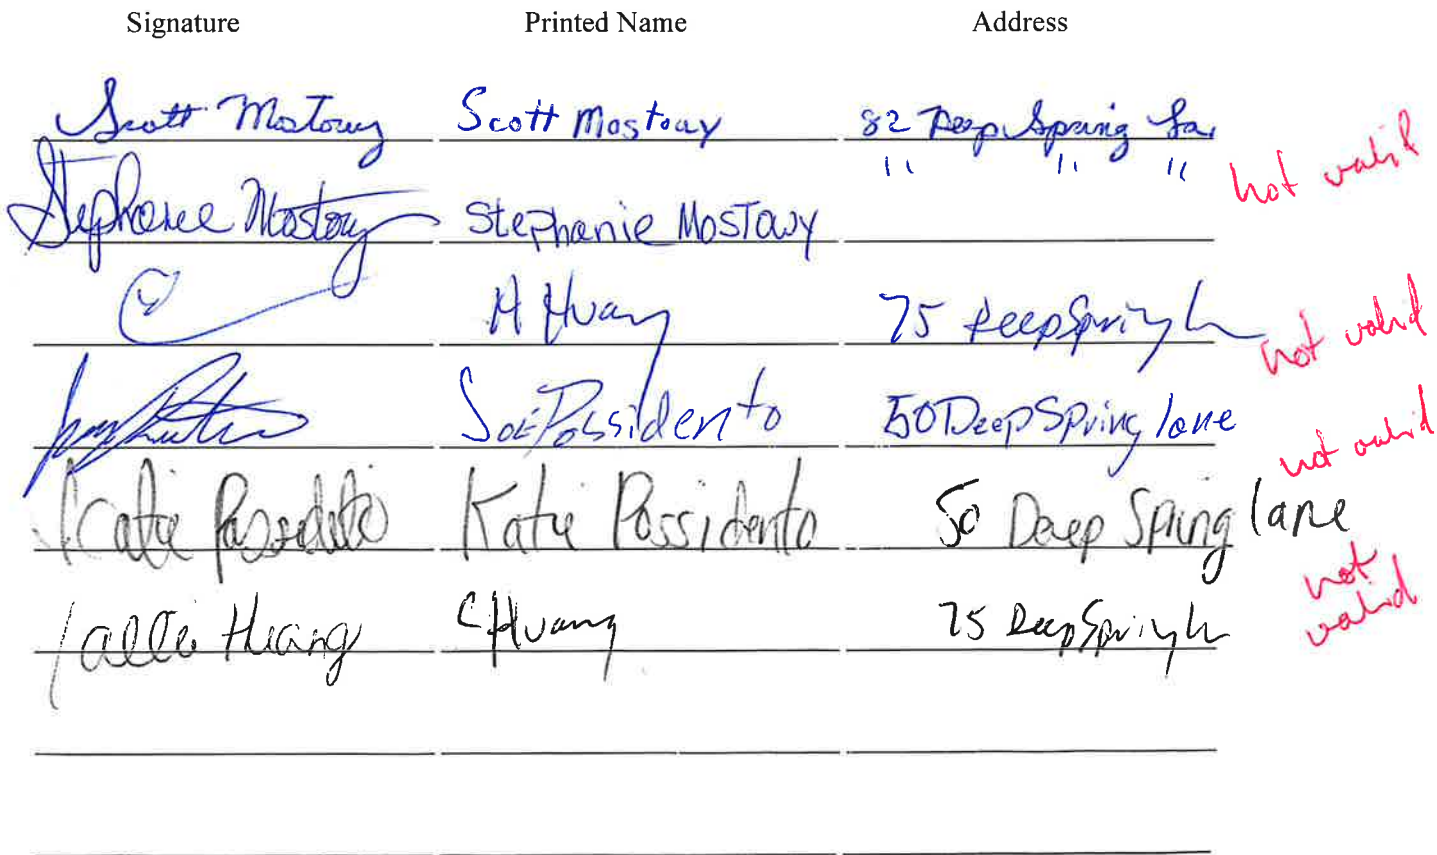 Signature Printed Name Address
Scott Mostowy Scott Mostowy 82 Deep Spring La.
Stephanie Mostowy Stephanie Mostowy " " " not valid
A Huang 75 Deep Spring Ln not valid
Joe Possidento 50 Deep Spring lane not valid
Katie Possidento Katie Possidento 50 Deep Spring lane
Callie Huang C Huang 75 Deep Spring Ln not valid